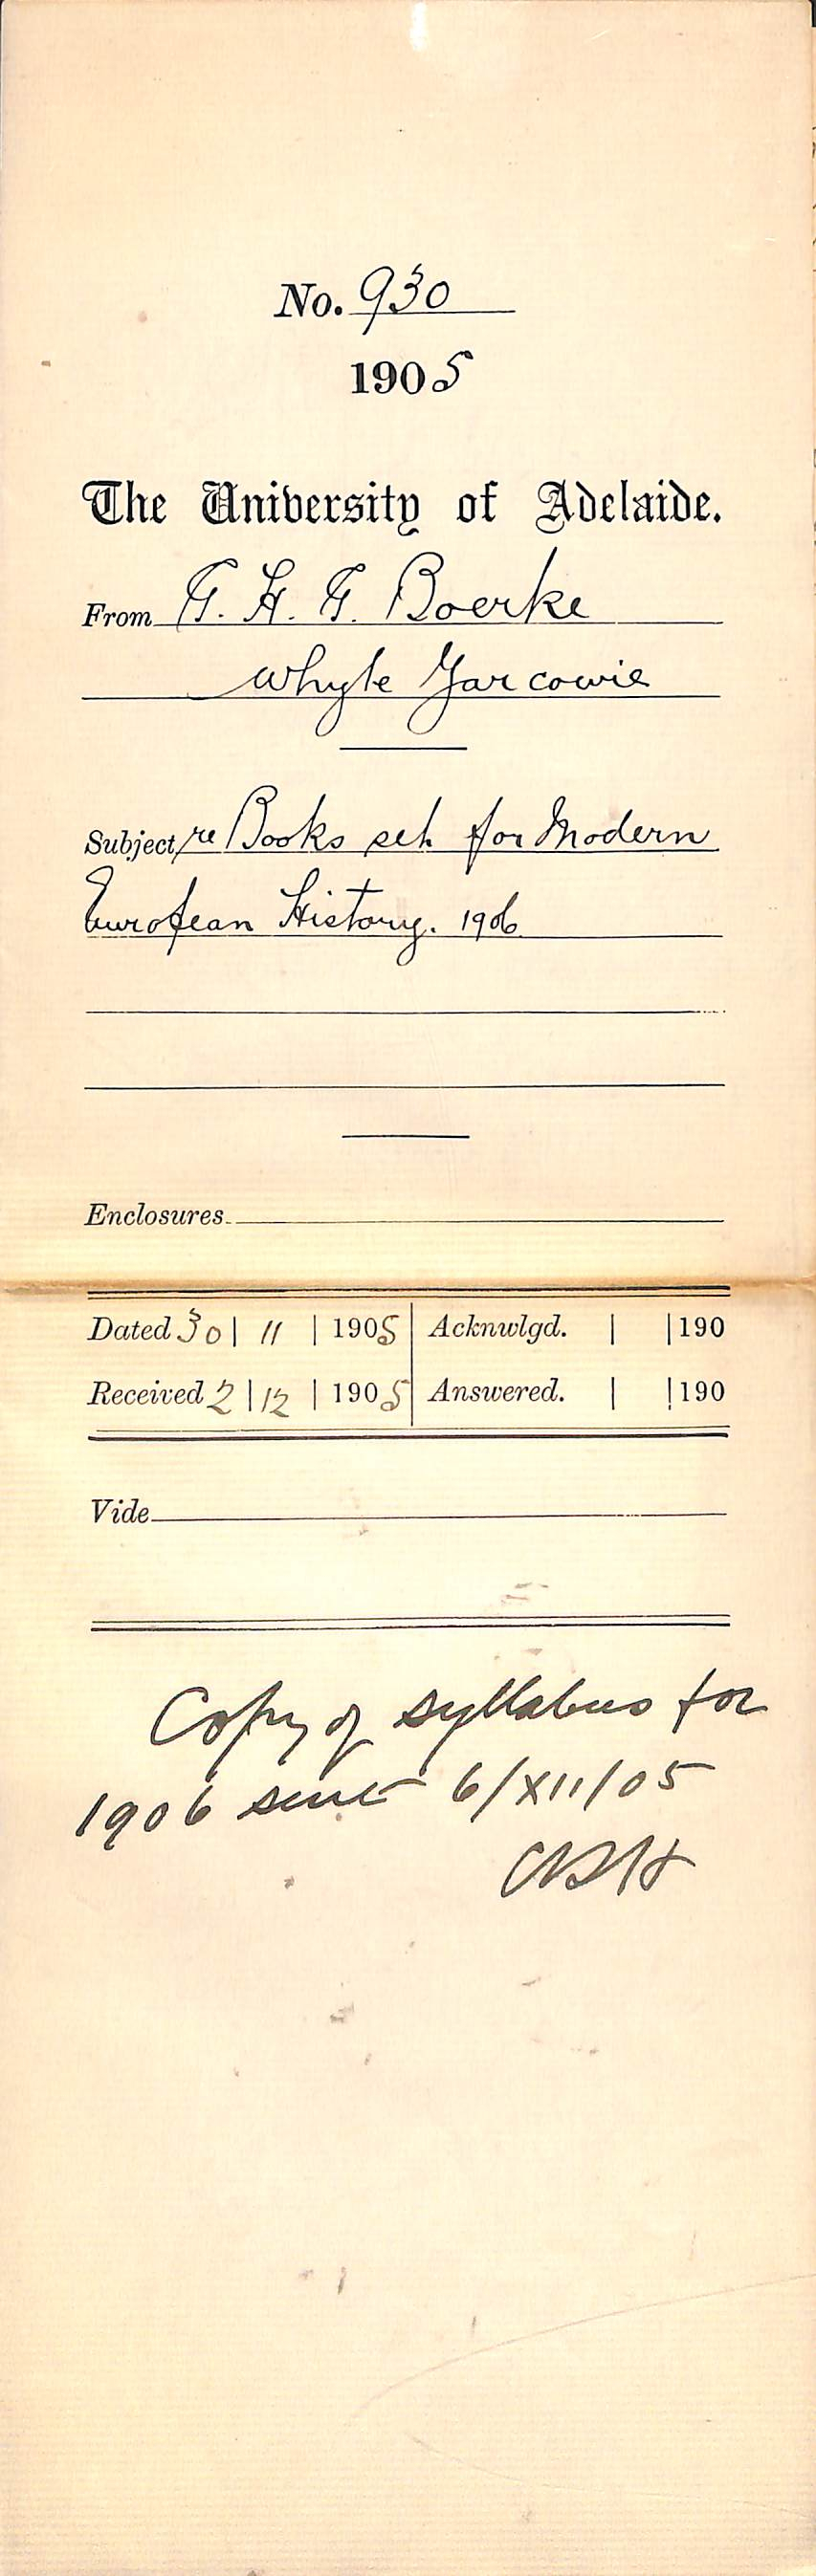 No. 930
1905
The University of Adelaide.
From G. H. G. Boerke
Whyte Yarcowie
Subject, re Books set for Modern
European History. 1906
Enclosures
Dated 30 | 11 | 1905 | Acknwlgd. | | 190
Received 2 | 12 | 1905 | Answered. | | 190
Vide
Copy of syllabus for
1906 sent 6/XII/05